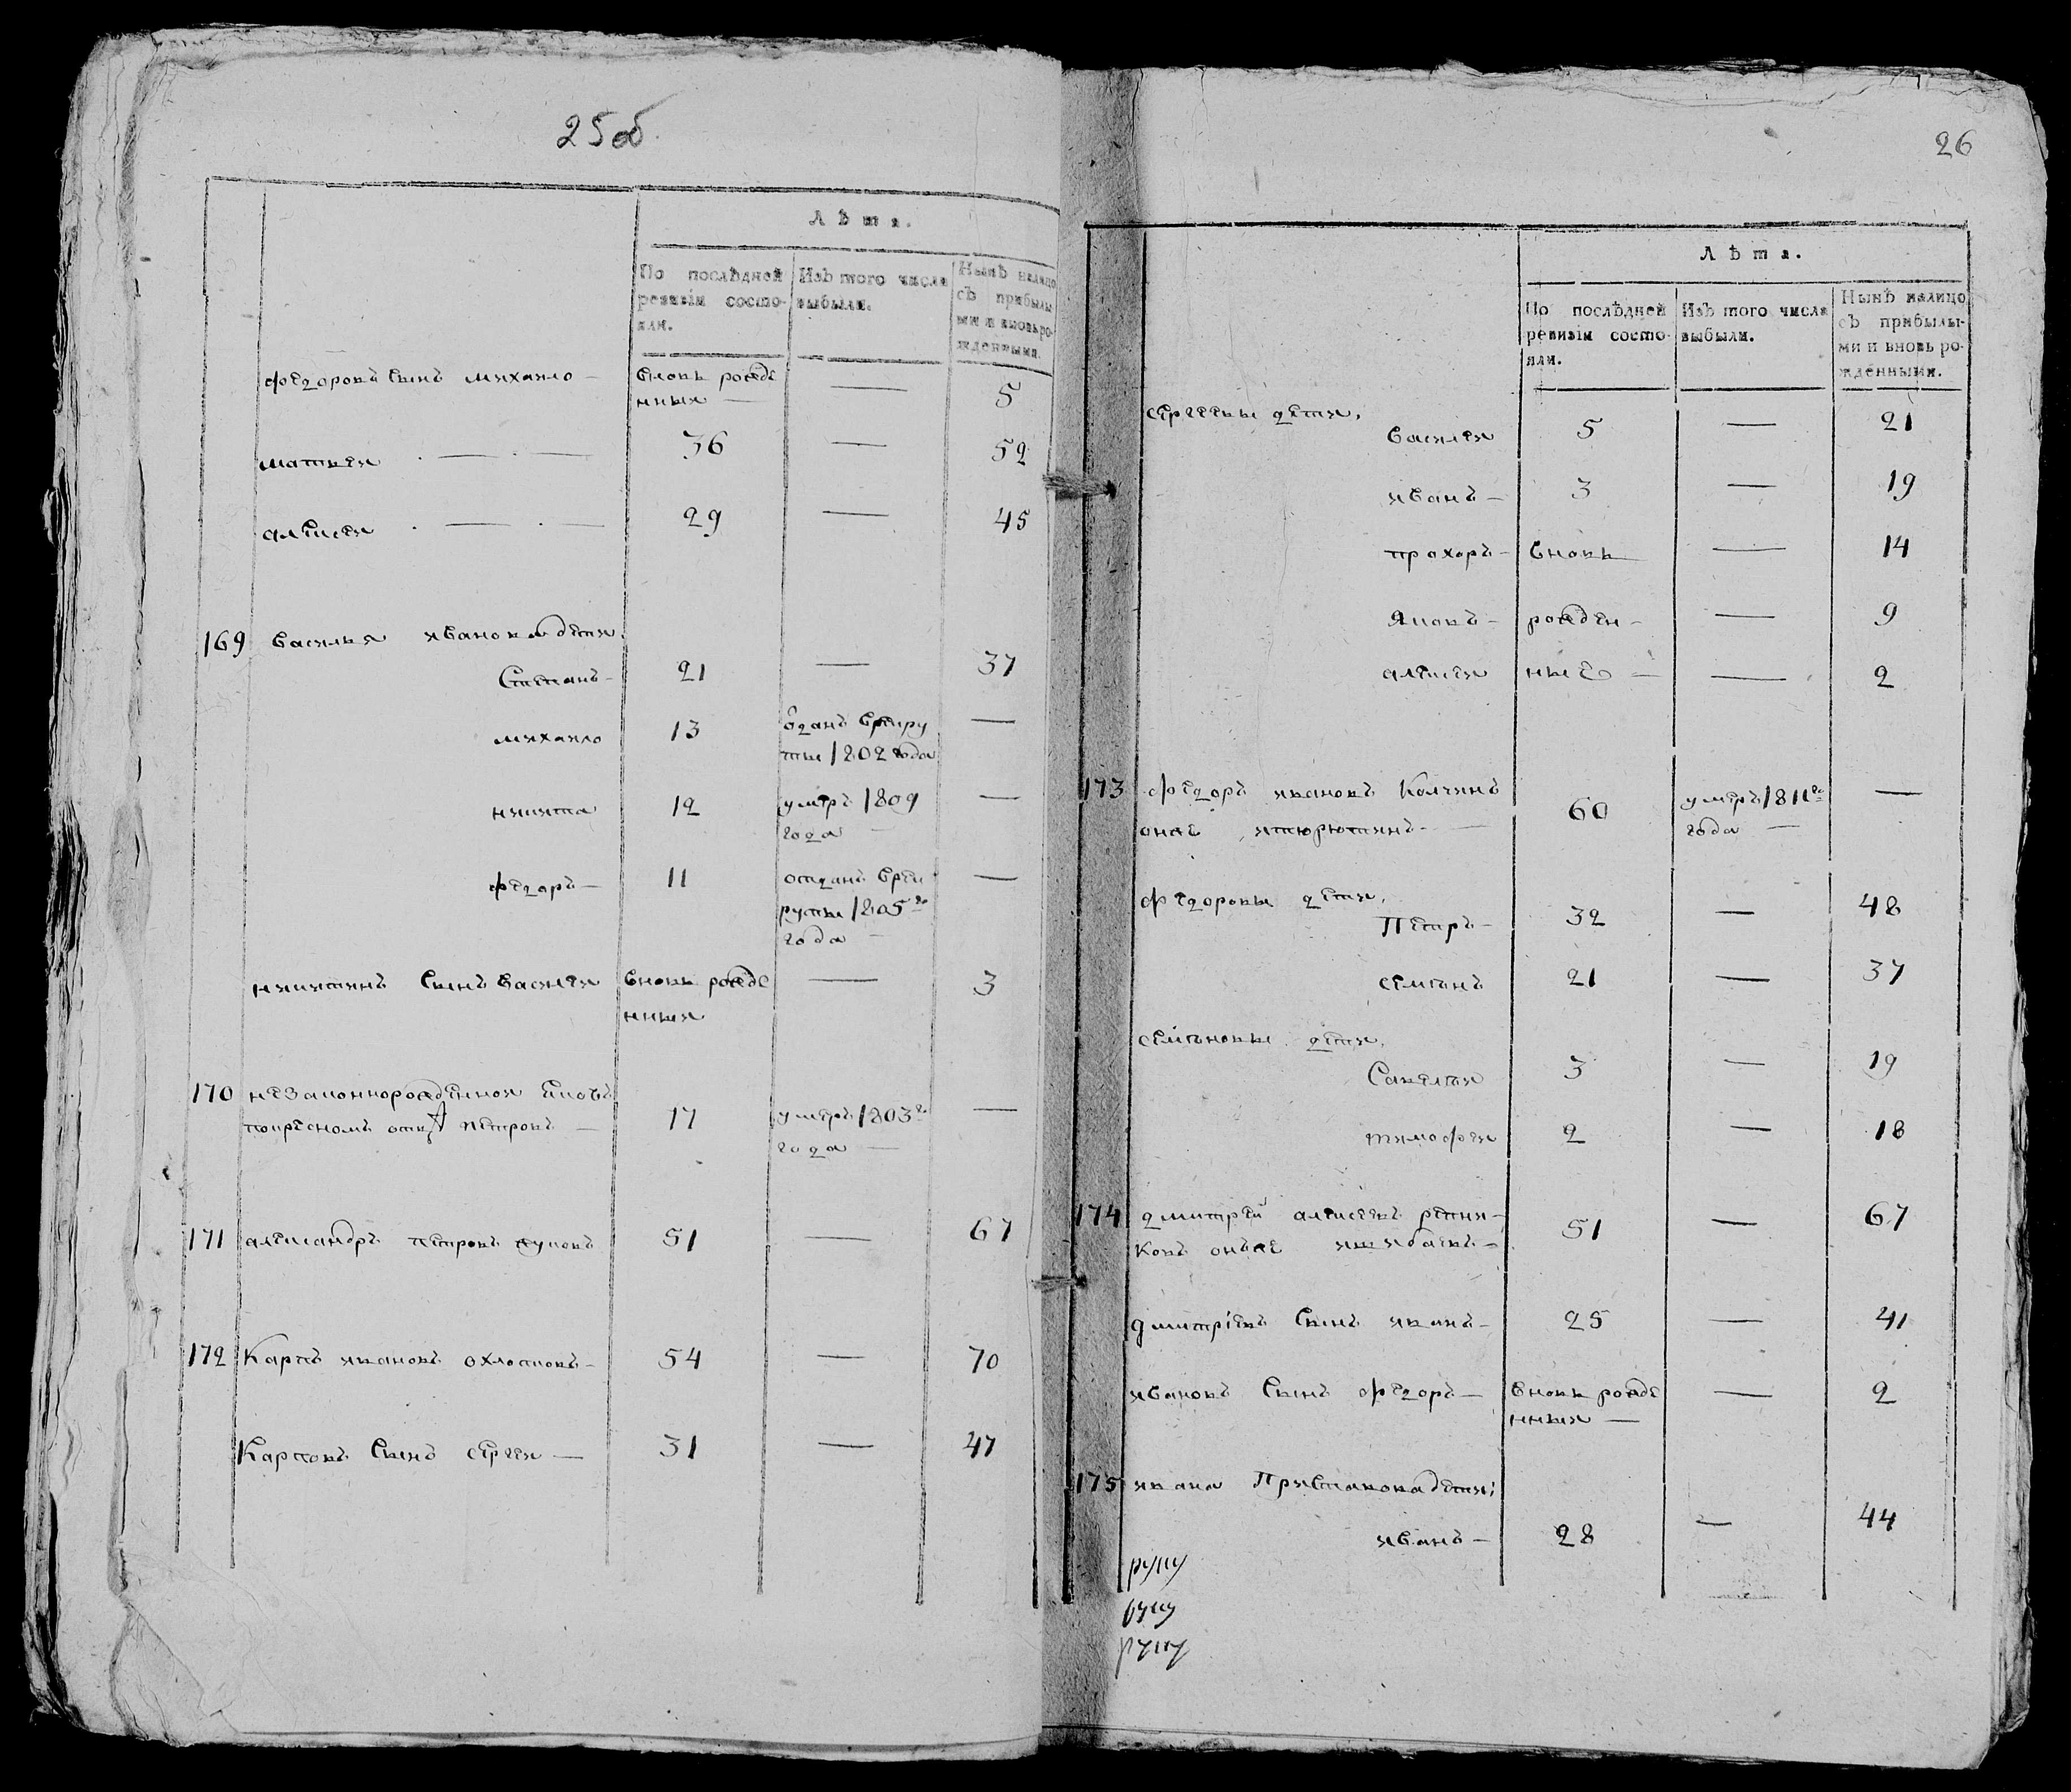 25об
Лѣта.
По послѣдней ревизіи состояли.
Изъ того числа выбыли.
Нынѣ налицо съ прибылыми и вновь рожденными.
федоровъ сынъ михаило — вновь рожде — 5
нныи —
матвеи — 36 — 52
алексеи — 29 — 45
169 василья иванова дети,
Степанъ — 21 — 37
михаило 13 одданъ врекру —
ты 1802 года
никита 12 умеръ 1809 —
года —
федоръ — 11 отданъ врек —
руты 1805го
года —
никитинъ сынъ василеи вновь рожде — 3
нныи
170 незаконнорожденнои
Петровъ — 17 умеръ 1803го —
года —
171 александръ петровъ 51 — 67
172 Карпъ ивановъ охлопковъ — 54 — 70
Карповъ сынъ сергеи — 31 — 47
26
Лѣта.
По послѣдней ревизіи состояли.
Изъ того числа выбыли.
Нынѣ налицо съ прибылыми и вновь рожденными.
сергеевы дети,
василеи 5 — 21
иванъ — 3 — 19
прохоръ — вновь — 14
яковъ — рожден — — 9
алексеи ные — — 2
173 федоръ ивановъ Колчинъ 60 умеръ 1811го —
онже итюрютинъ — года —
федоровы дети,
Петръ — 32 — 48
семенъ 21 — 37
семеновы дети,
Савелеи 3 — 19
тимофеи 2 — 18
174 дмитреи алексеевъ репни-
ковъ онъже ишибаевъ — 51 — 67
дмитріевъ сынъ иванъ — 25 — 41
ивановъ сынъ федоръ — вновь рожде — 2
нныи —
175 ивана Приставова дети;
иванъ — 28 — 44
руку
руку
руку